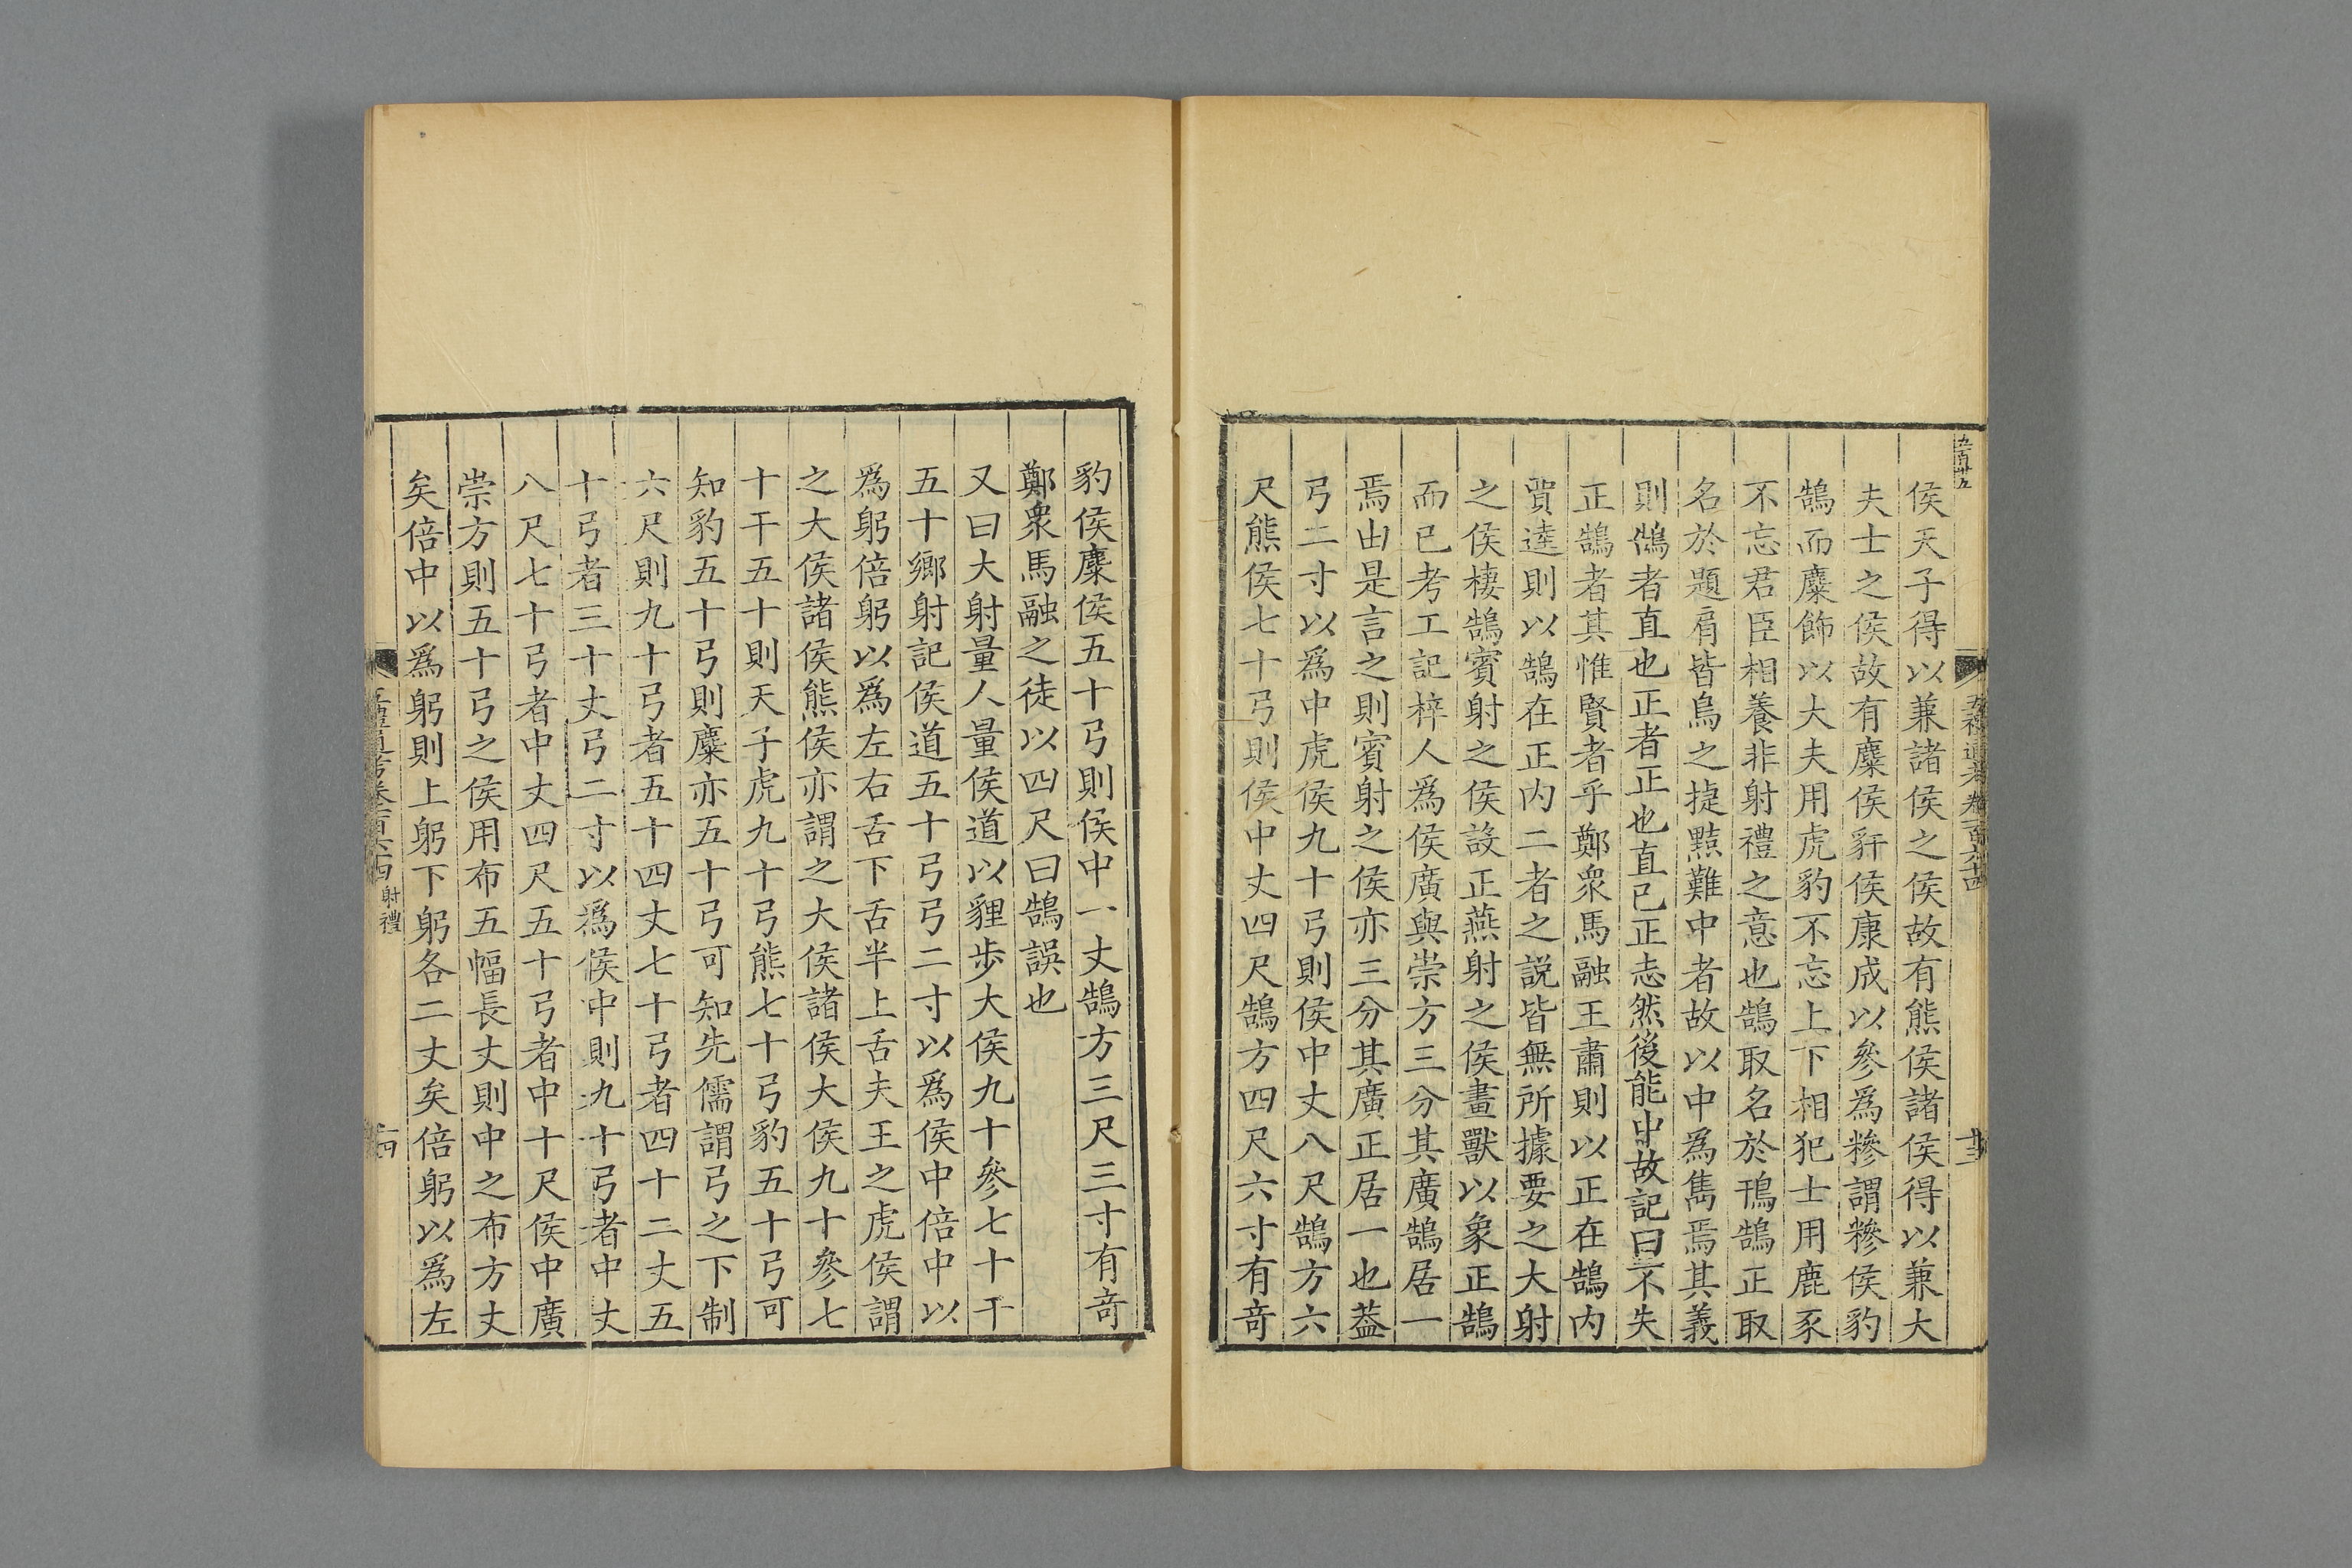 侯天子得以兼諸侯之侯故有熊侯諸侯得以兼大
夫士之侯故有麋侯豻侯康成以參爲糝謂糝侯豹
鵠而麋飾以大夫用虎豹不忘上下相犯士用鹿豕
不忘君臣相養非射禮之意也鵠取名於鳱鵠正取
名於題肩皆鳥之捷黠難中者故以中爲雋焉其義
則鵠者直也正者正也直已正志然後能中故記曰不失
正鵠者其惟賢者乎鄭衆馬融王肅則以正在鵠内
賈逵則以鵠在正内二者之説皆無所據要之大射
之侯棲鵠賓射之侯設正燕射之侯畫獸以象正鵠
而已考工記梓人爲侯廣與崇方三分其廣鵠居一
焉由是言之則賓射之侯亦三分其廣正居一也葢
弓二寸以爲中虎侯九十弓則侯中丈八尺鵠方六
尺熊侯七十弓則侯中丈四尺鵠方四尺六寸有奇
豹侯麋侯五十弓則侯中一丈鵠方三尺三寸有奇
鄭衆馬融之徒以四尺曰鵠誤也
又曰大射量人量侯道以貍步大侯九十參七十干
五十鄉射記侯道五十弓弓二寸以爲侯中倍中以
爲躬倍躬以爲左右舌下舌半上舌夫王之虎侯謂
之大侯諸侯熊侯亦謂之大侯諸侯大侯九十參七
十干五十則天子虎九十弓熊七十弓豹五十弓可
知豹五十弓則麋亦五十弓可知先儒謂弓之下制
六尺則九十弓者五十四丈七十弓者四十二丈五
十弓者三十丈弓二寸以爲侯中則九十弓者中丈
八尺七十弓者中丈四尺五十弓者中十尺侯中廣
崇方則五十弓之侯用布五幅長丈則中之布方丈
矣倍中以爲躬則上躬下躬各二丈矣倍躬以爲左
五禮通考卷一百六十四
射禮